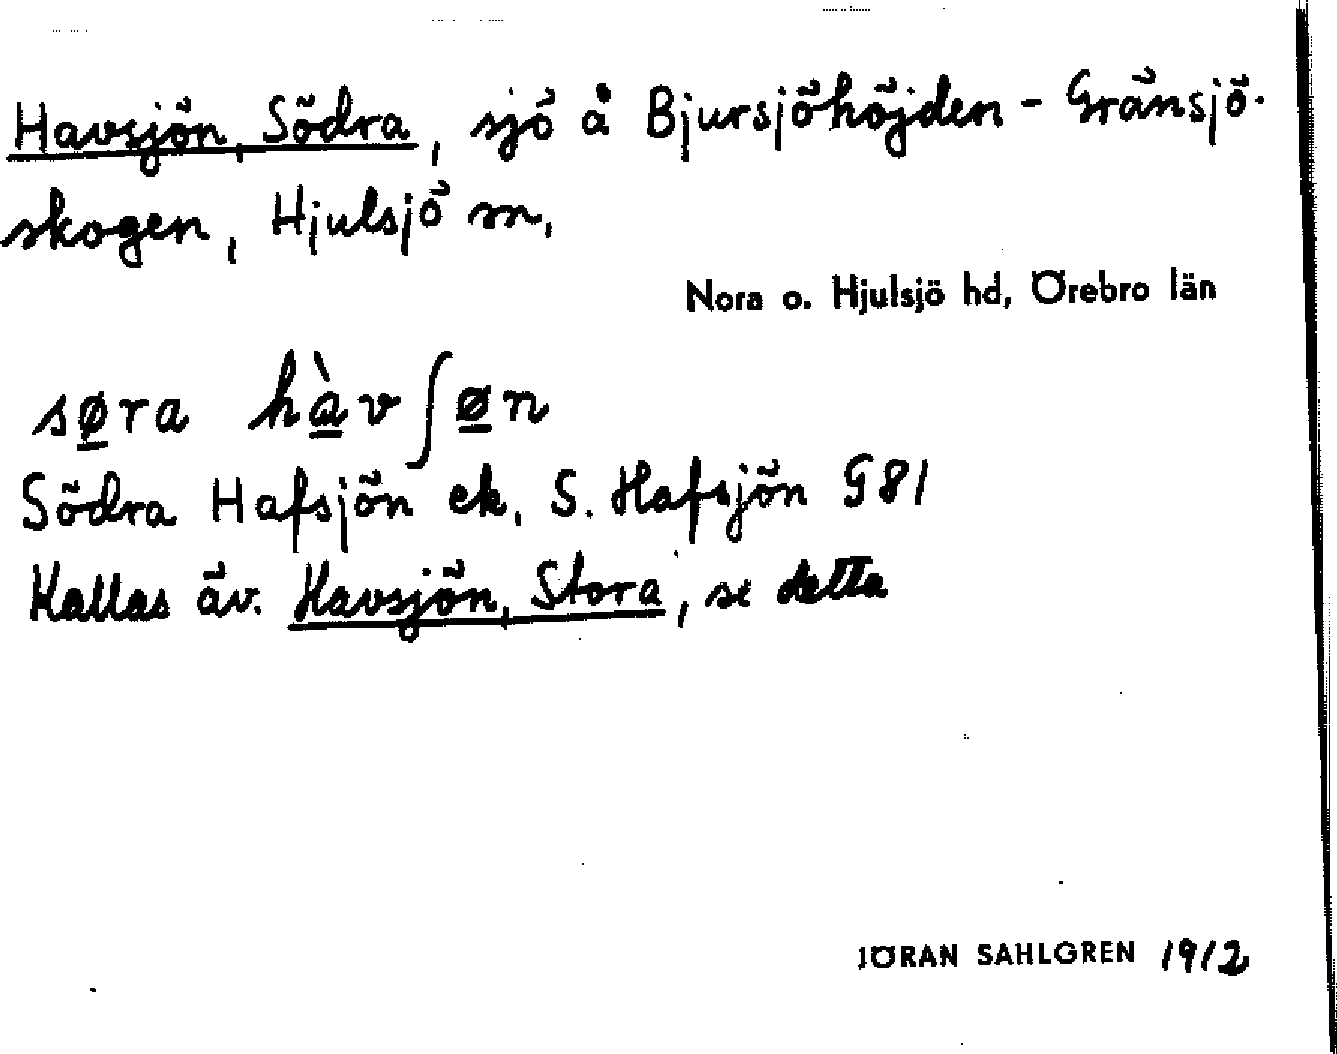 Havsjön, Södra, sjö å Bjursjöhöjden - Gränsjö-
skogen, Hjulsjö sn,
Nora o. Hjulsjö hd, Örebro län
sø̲ra hà̲vʃø̲n
Södra Hafsjön ek, S. Hafsjön G81
Kallas äv. Havsjön, Stora, se detta
JÖRAN SAHLGREN 1912